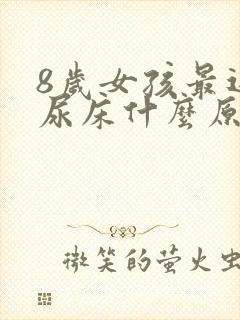 8歲女孩最近
尿床什麼原
微笑的萤火虫